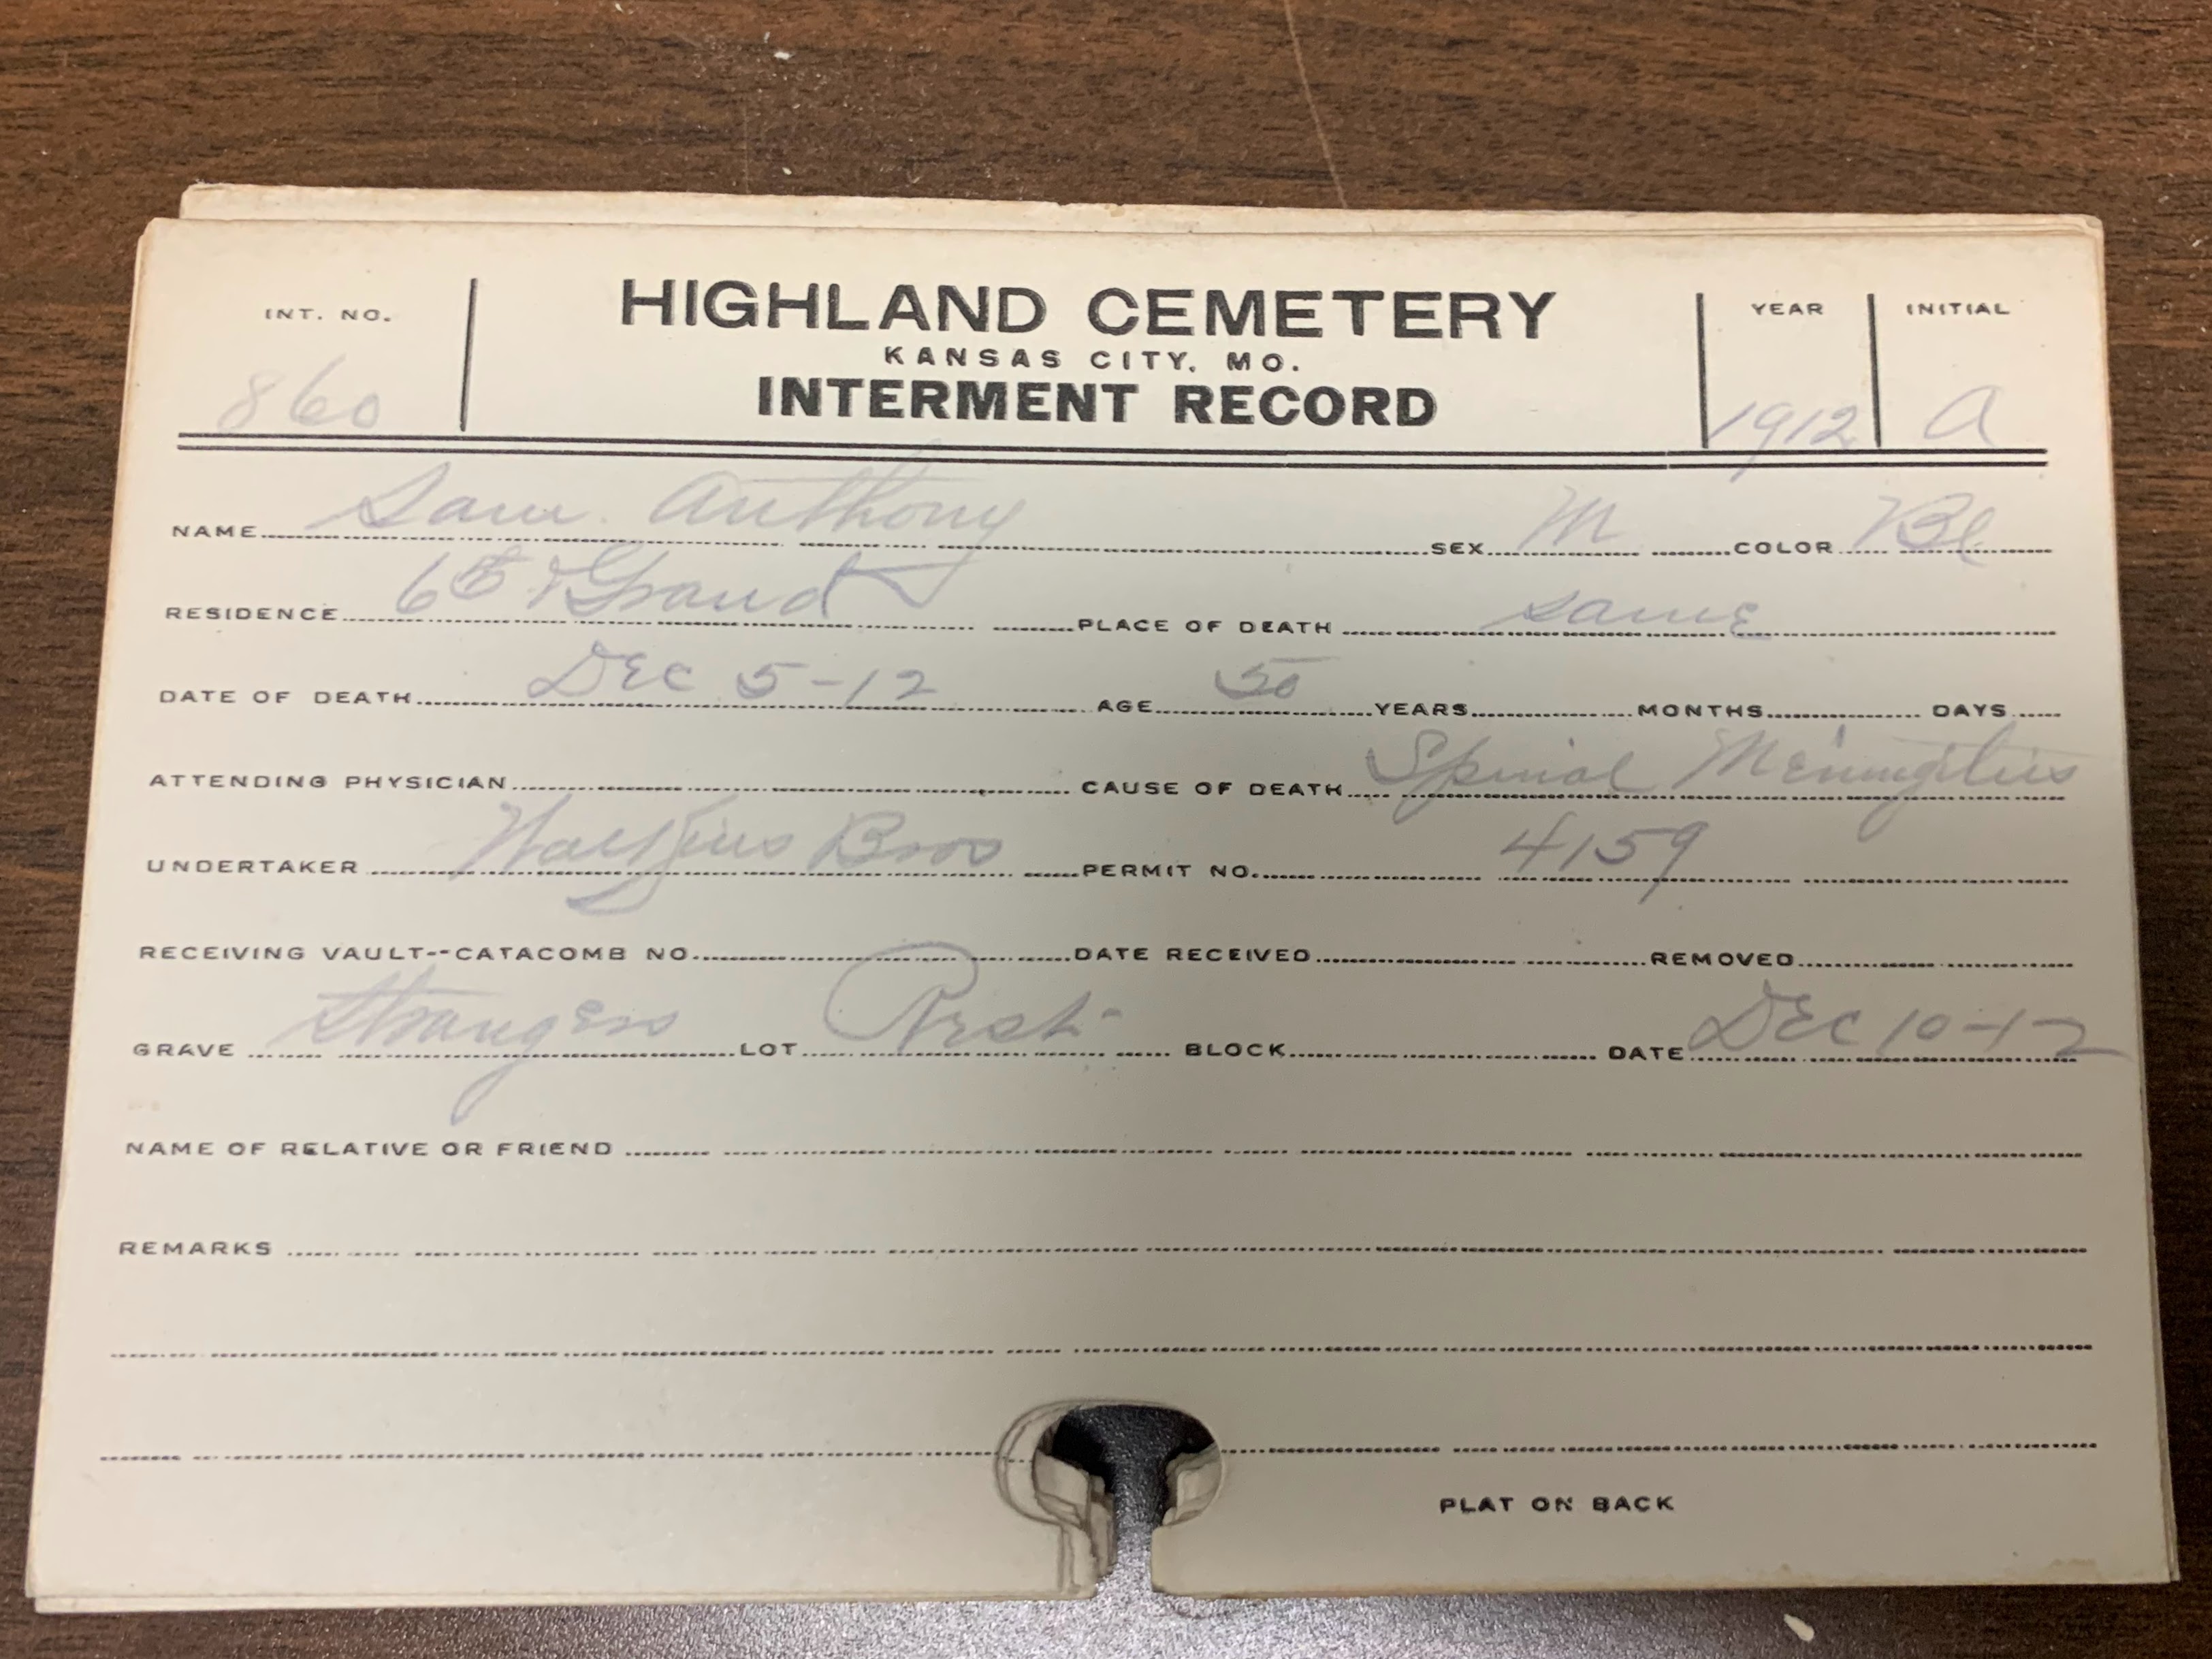 INT. NO. HIGHLAND CEMETERY YEAR INITIAL
KANSAS CITY, MO.
860 INTERMENT RECORD 1912 A
NAME Sam. Anthony SEX M COLOR Bl
RESIDENCE 6th & Grand PLACE OF DEATH same
DATE OF DEATH Dec 5-12 AGE 50 YEARS MONTHS DAYS
ATTENDING PHYSICIAN CAUSE OF DEATH Spinal Meningitis
UNDERTAKER Watkins Bros PERMIT NO. 4159
RECEIVING VAULT--CATACOMB NO. DATE RECEIVED REMOVED
GRAVE Strangers LOT BLOCK DATE Dec 10-12
NAME OF RELATIVE OR FRIEND
REMARKS
PLAT ON BACK